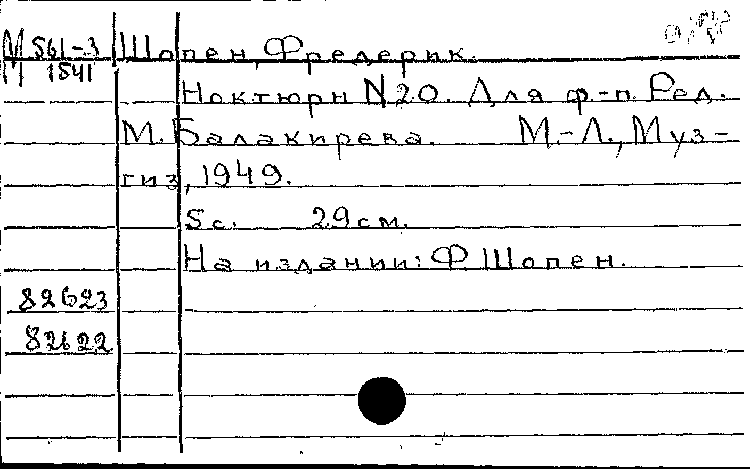 М 561-3 Шопен, Фредерик.
М 1541
Ноктюрн N 20. Для ф.-п. Ред.
М. Балакирева. М.-Л., Муз-
гиз, 1949.
5 с. 29 см.
На издании: Ф. Шопен.
82623
82622